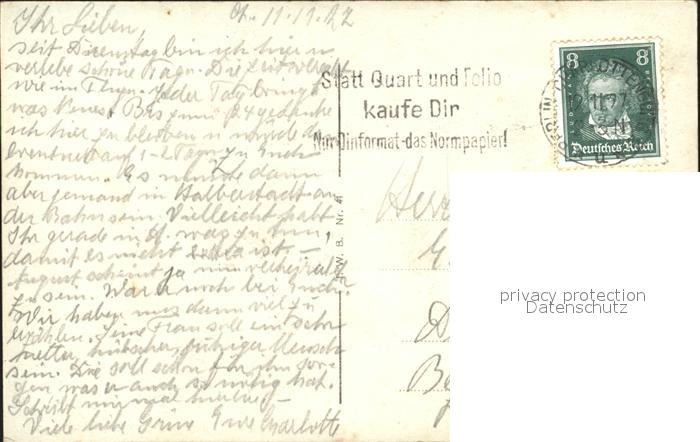 Ch. 11.11.27
Ihr Lieben,
seit Dienstag bin ich hier u
verlebe schöne Tage. Die Zeit vergeht
wie im Fluge. Jeder Tag bringt
was Neues. Bis zum 24 gedenke
ich hier zu bleiben u würde dann
eventuell auf 1-2 Tage zu Euch
kommen. Es müsste dann
aber jemand in Halberstadt an
der Bahn sein. Vielleicht habt
Ihr gerade in H. was zu tun,
damit es nicht extra ist –
August scheint ja nun verheiratet
zu sein. War er noch bei Euch?
Wir haben uns dann viel zu
erzählen. Seine Frau soll ein sehr
netter, hübscher, ruhiger Mensch
sein. Die soll schon für ihn sor-
gen was er auch so nötig hat.
Schreibt mir mal hierher.
Viele liebe Grüsse Eure Charlotte
Statt Quart und Folio
kaufe Dir
Nur Dinformat-das Normpapier!
8 8
Deutsches Reich
W. B. Nr. 41
privacy protection
Datenschutz